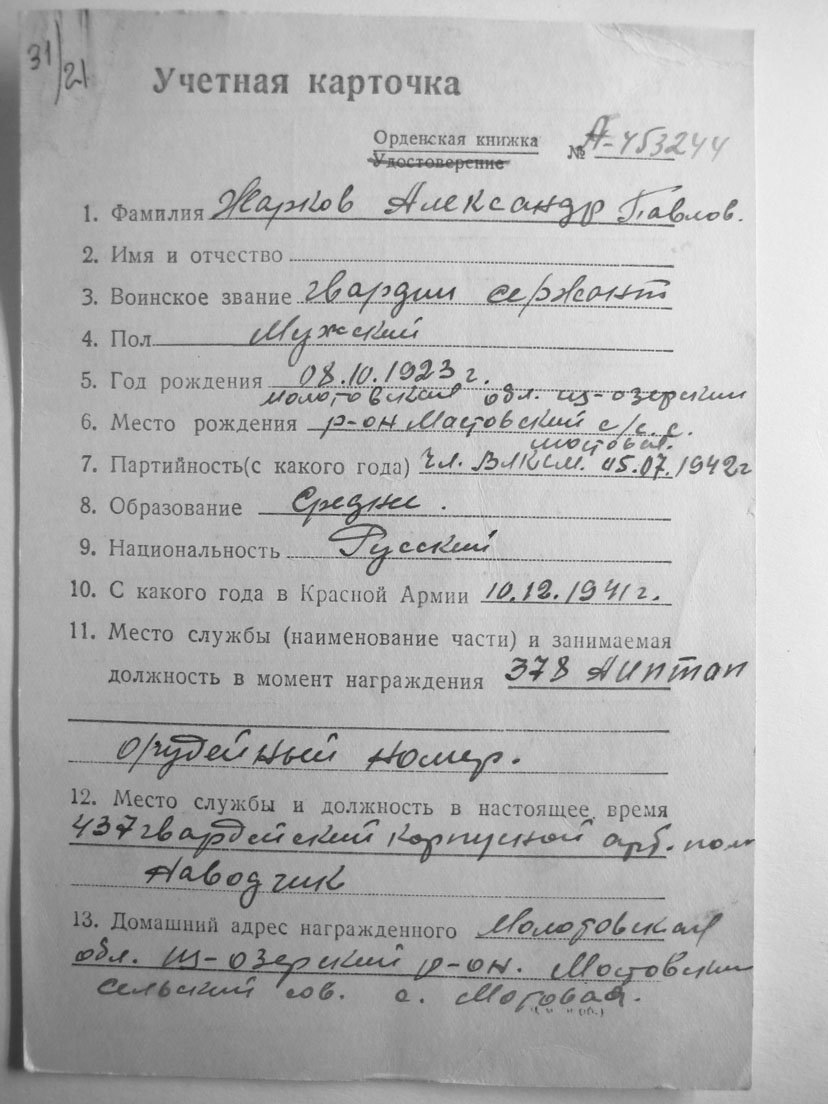 31/21
Учетная карточка
Орденская книжка
Удостоверение № А-453244
1. Фамилия Жарков Александр Павлов.
2. Имя и отчество
3. Воинское звание гвардии сержант
4. Пол Мужский
5. Год рождения 08.10.1923 г.
Молотовская обл. из-озерский
6. Место рождения р-он Мастовский с/с. с.
Мостовая.
7. Партийность (с какого года) чл. ВЛКСМ. 05.07.1942 г
8. Образование Средне.
9. Национальность Русский
10. С какого года в Красной Армии 10.12.1941 г.
11. Место службы (наименование части) и занимаемая
должность в момент награждения 378 АИПТАП
Орудейный номер.
12. Место службы и должность в настоящее время
437 гвардейский корпусной арт. полк
Наводчик
13. Домашний адрес награжденного Молотовская
обл. из-озерский р-он. Мостовский
сельский сов. с.